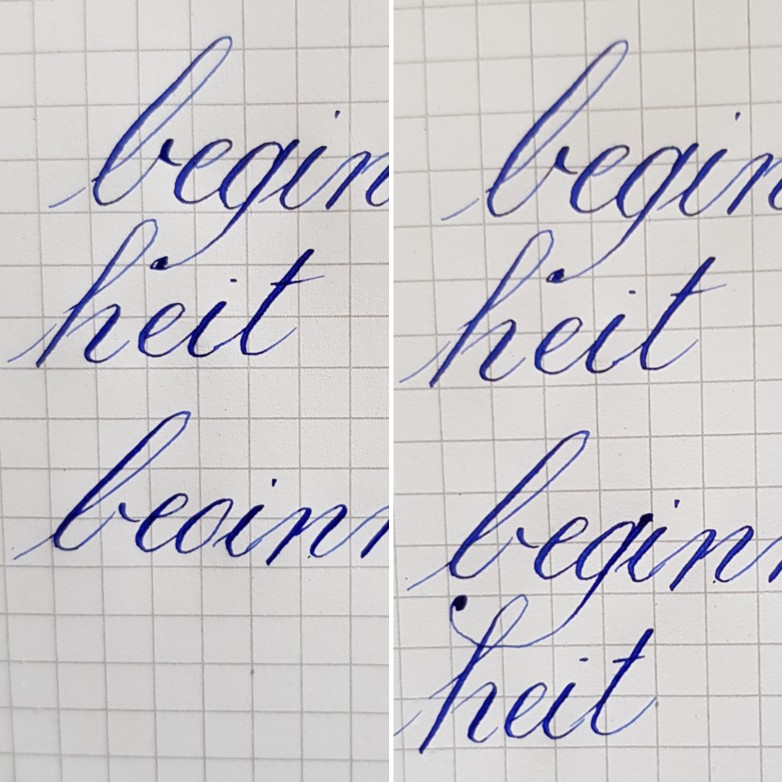 begin
heit
beoinn
begin
heit
beginn
heit